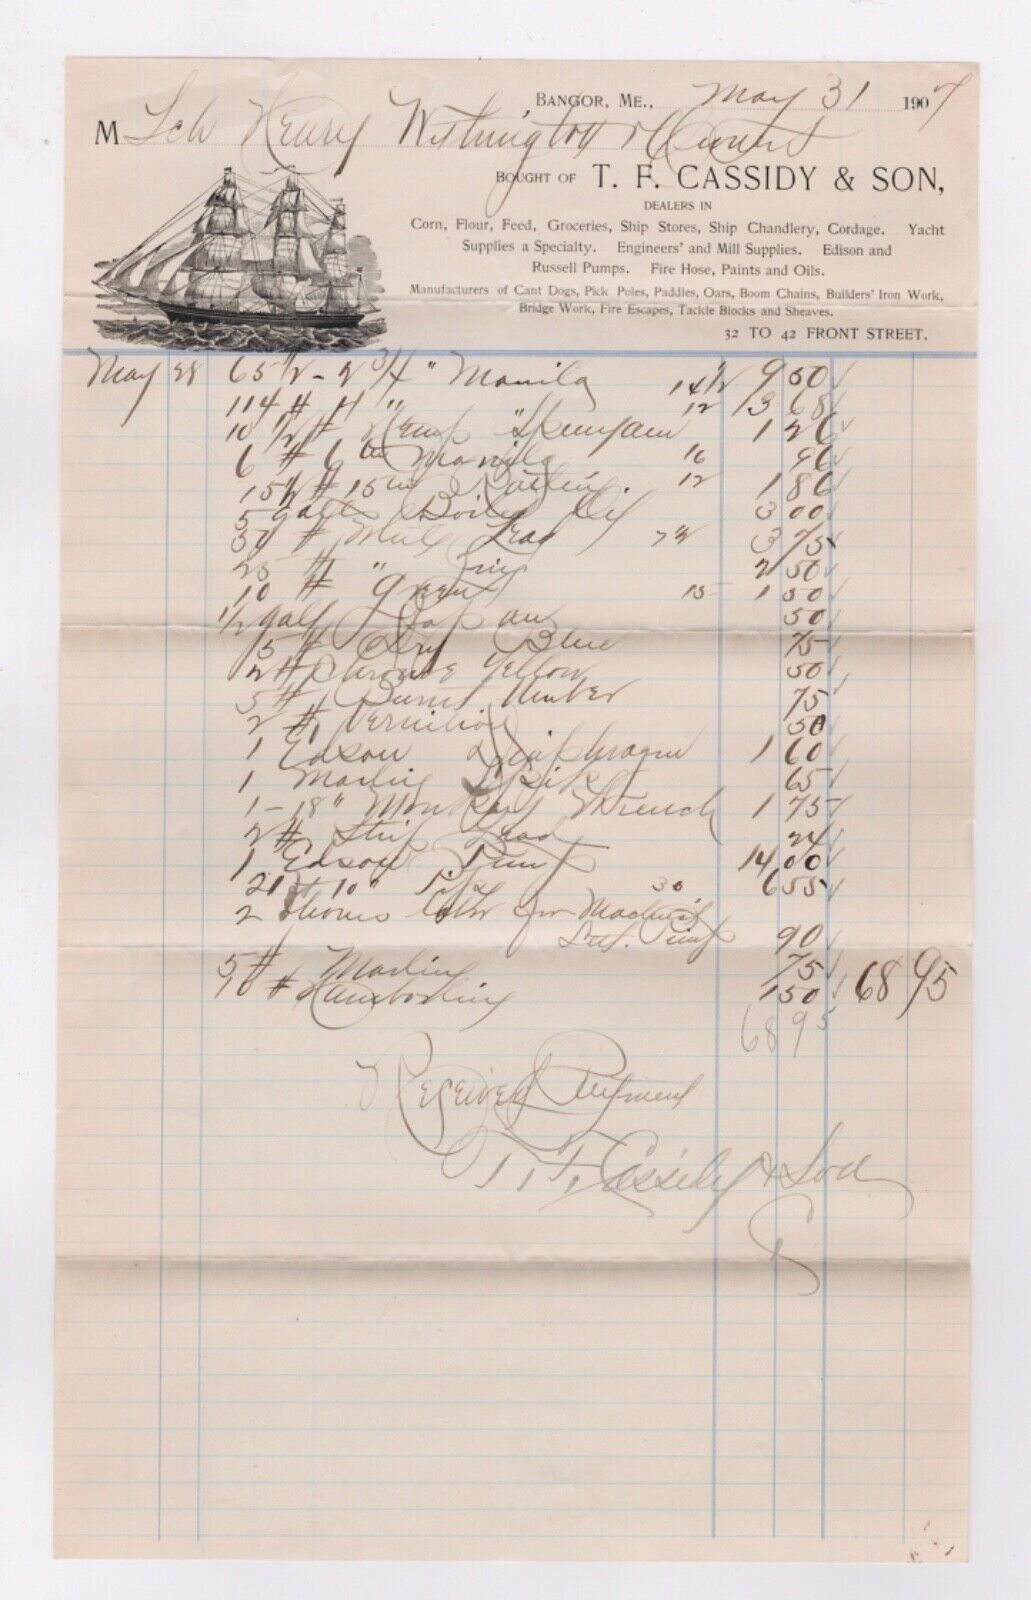 BANGOR, ME., May 31 1907
M Sch Henry Withington & Owners
BOUGHT OF T. F. CASSIDY & SON,
DEALERS IN
Corn, Flour, Feed, Groceries, Ship Stores, Ship Chandlery, Cordage. Yacht
Supplies a Specialty. Engineers' and Mill Supplies. Edison and
Russell Pumps. Fire Hose, Paints and Oils.
Manufacturers of Cant Dogs, Pick Poles, Paddles, Oars, Boom Chains, Builders' Iron Work,
Bridge Work, Fire Escapes, Tackle Blocks and Sheaves.
32 TO 42 FRONT STREET.
May 28 65 1/2 - 2 3/4 " Manila 14 1/2 9 50
114 # " 12 13 68
10 1/2 # Hemp Spunyarn 1 26
6 # 6 Manila 16 96
15 1/2 # 15 Ratlin. 12 1 86
5 galls Boiled Oil 3 00
50 # Lead 7 1/2 3 75
25 # " Zinc 2 50
10 # Green 15 1 50
1/2 gall Japan 50
5 # Dry Blue 75
2 # Chrome Yellow 50
5 # Burnt Umber 75
2 # Vermilion 50
1 Edson Diaphragm 1 60
1 Marlin Spike 65
1 - 18" Monkey Wrench 1 75
2 # Strip Lead 24
1 Edson Pump 14 00
21 10" Pipe 30 6 55
2 for
Pump 90
5 # Marline 75
10 # Hambroline 1 50 68 95
68 95
Received Payment
T. F. Cassidy & Son